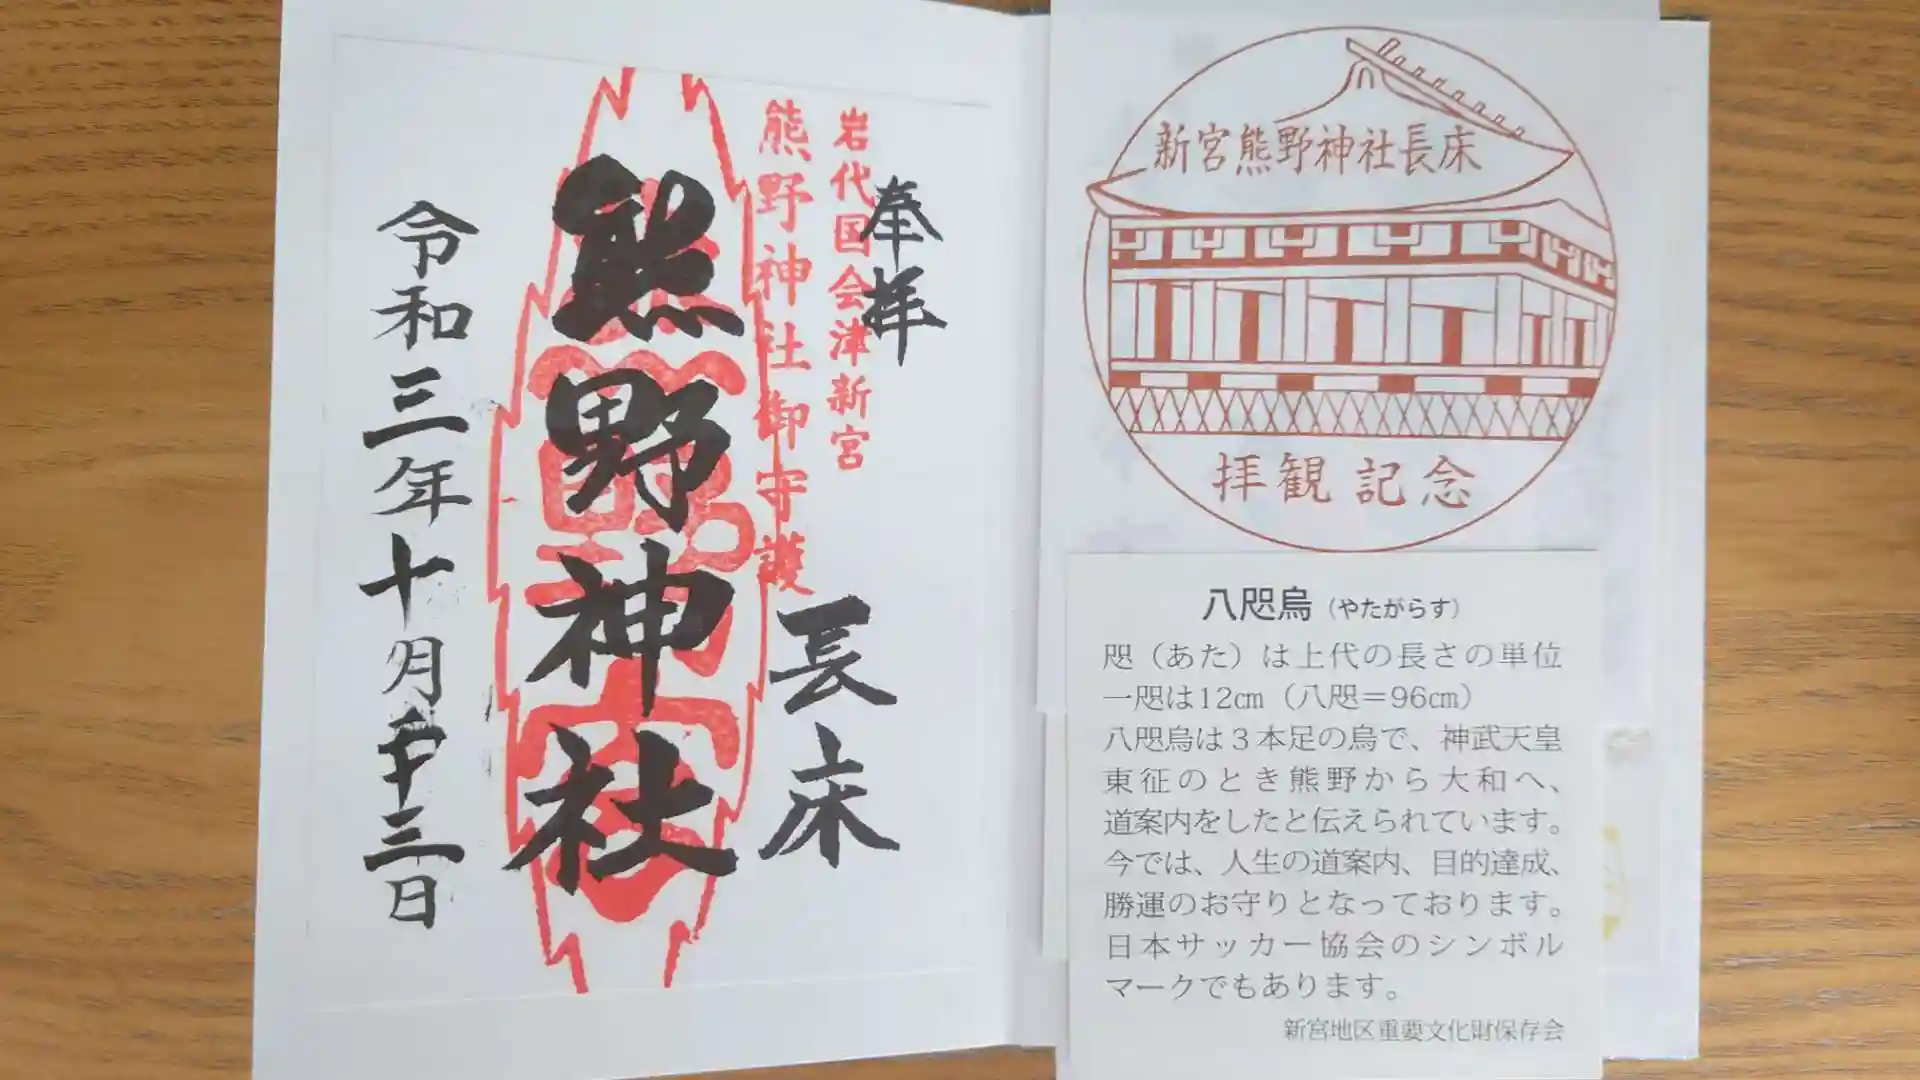 奉拝
岩代国会津新宮
熊野神社御守護
長床
熊野神社
令和三年十月二十三日
新宮熊野神社長床
拝観記念
八咫烏（やたがらす）
咫（あた）は上代の長さの単位
一咫は12㎝（八咫＝96㎝）
八咫烏は３本足の烏で、神武天皇
東征のとき熊野から大和へ、
道案内をしたと伝えられています。
今では、人生の道案内、目的達成、
勝運のお守りとなっております。
日本サッカー協会のシンボル
マークでもあります。
新宮地区重要文化財保存会